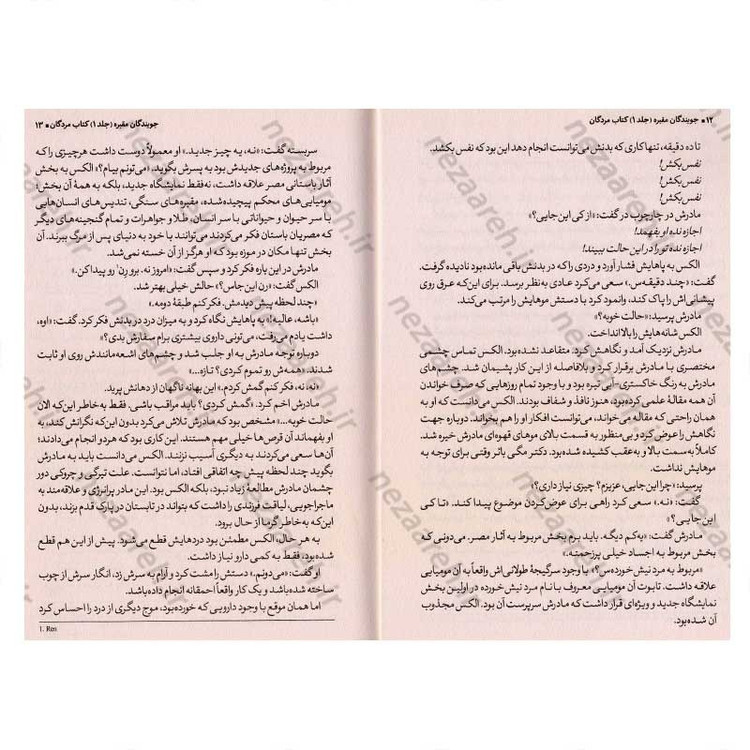 ۱۲ ■ جویندگان مقبره (جلد ۱) کتاب مردگان
تا ده دقیقه، تنها کاری که بدنش می‌توانست انجام دهد این بود که نفس بکشد.
نفس بکش!
نفس بکش!
نفس بکش!
مادرش در چارچوب در گفت: «از کی این‌جایی؟»
اجازه نده او بفهمد!
اجازه نده تو را در این حالت ببیند!
الکس به پاهایش فشار آورد و دردی را که در بدنش باقی مانده بود نادیده گرفت.
گفت: «چند دقیقه‌س.» سعی می‌کرد عادی به‌نظر برسد. برای این‌که عرق روی
پیشانی‌اش را پاک کند، وانمود کرد با دستش موهایش را مرتب می‌کند.
مادرش پرسید: «حالت خوبه؟»
الکس شانه‌هایش را بالا انداخت.
مادرش نزدیک آمد و نگاهش کرد. متقاعد نشده بود. الکس تماس چشمی
مختصری با مادرش برقرار کرد و بلافاصله از این کار پشیمان شد. چشم‌های
مادرش به رنگ خاکستری-آبی تیره بود و با وجود تمام روزهایی که صرف خواندن
آن همه مقالهٔ علمی کرده بود، هنوز نافذ و شفاف بودند. الکس می‌دانست که او به
همان راحتی که مقاله می‌خواند، می‌توانست افکار او را هم بخواند. دوباره جهت
نگاهش را عوض کرد و بی‌منظور به قسمت بالای موهای قهوه‌ای مادرش خیره شد.
کاملاً به سمت بالا و به عقب کشیده شده بود. دکتر مگی بائر وقتی برای توجه به
موهایش نداشت.
پرسید: «چرا این‌جایی، عزیزم؟ چیزی نیاز داری؟»
گفت: «نه.» سعی کرد راهی برای عوض‌کردن موضوع پیدا کند. «تا کی
این جایی؟»
مادرش گفت: «یه‌کم دیگه. باید برم بخش مربوط به آثار مصر. می‌دونی که
بخش مربوط به اجساد خیلی پرزحمته.»
«مربوط به مرد نیش خورده‌س؟» با وجود سرگیجهٔ طولانی‌اش واقعاً به آن مومیایی
علاقه داشت. تابوت آن مومیایی معروف با نام مرد نیش خورده در اولین بخش
نمایشگاه جدید و ویژه‌ای قرار داشت که مادرش سرپرست آن بود. الکس مجذوب
آن شده بود.
جویندگان مقبره (جلد ۱) کتاب مردگان ■ ۱۳
سربسته گفت: «نه، یه چیز جدید.» او معمولاً دوست داشت هرچیزی را که
مربوط به پروژه‌های جدیدش بود به پسرش بگوید. «می‌تونم بیام؟» الکس به بخش
آثار باستانی مصر علاقه داشت، نه‌فقط نمایشگاه جدید، بلکه به همهٔ آن بخش:
مومیایی‌های محکم پیچیده‌شده، مقبره‌های سنگی، تندیس‌های انسان‌هایی
با سر حیوان و حیواناتی با سر انسان، طلا و جواهرات و تمام گنجینه‌های دیگر
که مصریان باستان فکر می‌کردند می‌توانند با خود به دنیای پس از مرگ ببرند. آن
بخش تنها مکان در موزه بود که او هرگز از آن خسته نمی‌شد.
مادرش در این باره فکر کرد و سپس گفت: «امروز نه. برو رن¹ رو پیدا کن.»
الکس گفت: «رن این جاس؟» حالش خیلی بهتر شد.
«چند لحظه پیش دیدمش. فکر کنم طبقهٔ دومه.»
«باشه، عالیه!» به پاهایش نگاه کرد و به میزان درد در بدنش فکر کرد. گفت: «اوه،
داشت یادم می‌رفت، می‌تونی داروی بیشتری برام سفارش بدی؟»
دوباره توجه مادرش به او جلب شد و چشم‌های اشعه‌مانندش روی او ثابت
شدند. «همه‌ش رو تموم کردی؟ تازه...»
«نه، نه، فکر کنم گمش کردم.» این بهانه ناگهان از دهانش پرید.
مادرش اخم کرد. «گمش کردی؟ باید مراقب باشی. فقط به‌خاطر این‌که الان
حالت خوبه...» مشخص بود که مادرش تلاش می‌کرد بدون این‌که نگرانش کند، به
او بفهماند آن قرص‌ها خیلی مهم هستند. این کاری بود که هردو انجام می‌دادند؛
آن‌ها سعی می‌کردند به دیگری آسیب نزنند. الکس می‌دانست باید به مادرش
بگوید چند لحظه پیش چه اتفاقی افتاد، اما نتوانست. علت تیرگی و چروکی دور
چشمان مادرش مطالعهٔ زیاد نبود، بلکه الکس بود. این مادر پرانرژی و علاقه‌مند به
ماجراجویی، لیاقت فرزندی را داشت که بتواند در تابستان در پارک قدم بزند، بدون
این‌که به‌خاطر گرما از حال برود.
به هر حال، الکس مطمئن بود دردهایش قطع می‌شود. پیش از این هم قطع
شده بود، فقط به کمی دارو نیاز داشت.
او گفت: «می‌دونم.» دستش را مشت کرد و آرام به سرش زد، انگار سرش از چوب
ساخته شده باشد و یک کار واقعاً احمقانه انجام داده باشد.
اما همان موقع با وجود دارویی که خورده بود، موج دیگری از درد را احساس کرد
1. Ren
nezaareh.ir